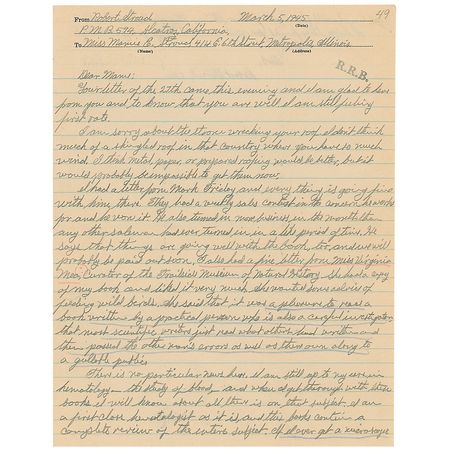 49
From Robert Stroud March 5, 1945
(Date)
P.M.B. 594, Alcatraz, California,
To Miss Mamie E. Stroud 414 E. 6th Street, Metropolis, Illinois
(Name) (Address)
R.R.B.
Dear Mame:
Your letter of the 27th came this evening and I am glad to hear
from you and to know that you are well. I am still feeling
first rate.
I am sorry about the storm wrecking your roof. I don't think
much of a shingled roof in that country where you have so much
wind. I think metal, paper, or prepared roofing would be better, but it
would probably be impossible to get them now.
I had a letter from Mark Presley and every thing is going fine
with him, there. They had a weekly sales contest in the concern he works
for and he won it. He also turned in more business in the month than
any other salesman had ever turned in in a like period of time. He
says that things are going well with the book, too, and we will
probably be paid out soon. I also had a fine letter from Miss Virginia
Moe, Curator of the Trailside Museum of Natural History. She had a copy
of my book and liked it very much. She wanted some advice of
feeding wild birds. She said that it was a pleasure to read a
book written by a practical person who is also a careful investigator,
that most scientific writers just read what others had written and
then passed the other man's errors as well as their own along to
a gullible public.
There is no particular news here. I am still up to my ears in
hematology—the study of blood—and when I get through with these
books I will know about all there is on that subject. I am
a first class hematologist as it is, and these books contain a
complete review of the entire subject. If I ever get a microscope